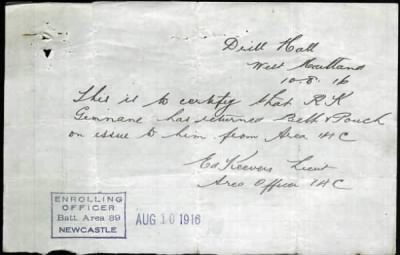 Drill Hall
West Maitland
10.8.16
This is to certify that R K
Ginnane has returned Belt & Pouch
on issue to him from Area 14C
Ed Keevers Lieut
Area Officer 14C
ENROLLING
OFFICER
Batt. Area 89
NEWCASTLE
AUG 10 1916